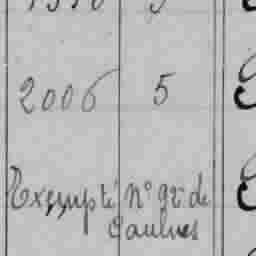 2006 5
Exempté n° 92 de
Caulnes